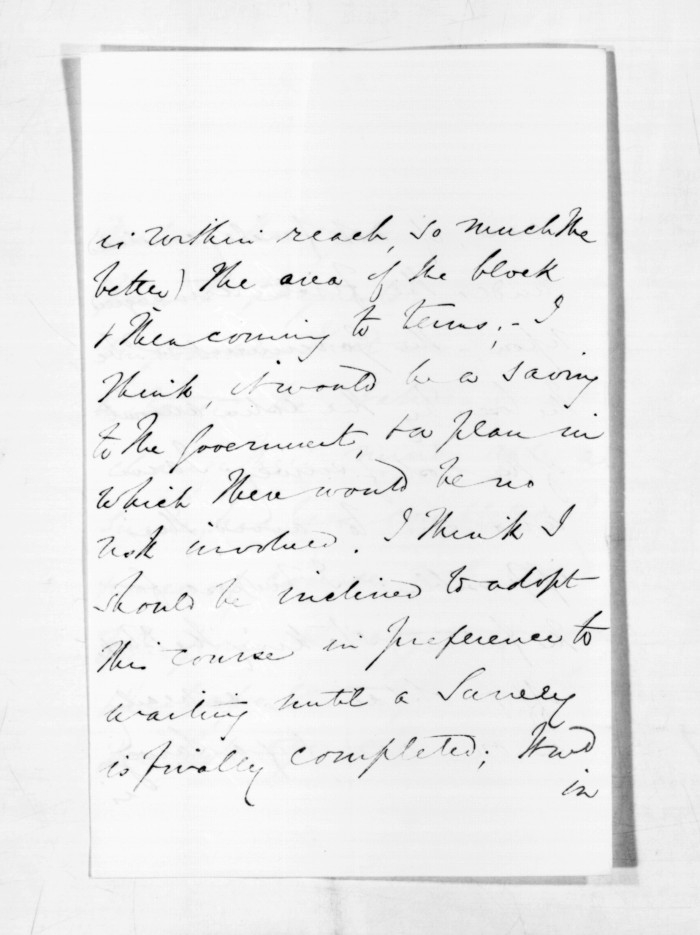 is within reach, so much the
better) the area of the block
& then coming to terms; - I
think, it would be a saving
to the Government, & a plan in
which there would be no
risk involved. I think I
should be inclined to adopt
this course in preference to
waiting until a Survey
is finally completed;
in